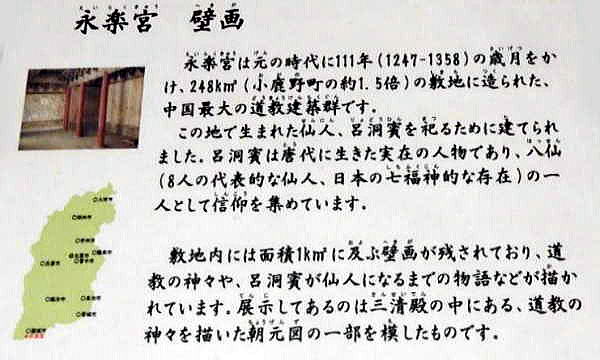 永楽宮　壁画
永楽宮は元の時代に111年(1247-1358)の歳月をか
け、248k㎡(小鹿野町の約1.5倍)の敷地に造られた、
中国最大の道教建築群です。
この地で生まれた仙人、呂洞賓を祀るために建てられ
ました。呂洞賓は唐代に生きた実在の人物であり、八仙
(8人の代表的な仙人、日本の七福神的な存在)の一
人として信仰を集めています。
敷地内には面積1k㎡に及ぶ壁画が残されており、道
教の神々や、呂洞賓が仙人になるまでの物語などが描か
れています。展示してあるのは三清殿の中にある、道教の
神々を描いた朝元図の一部を模したものです。